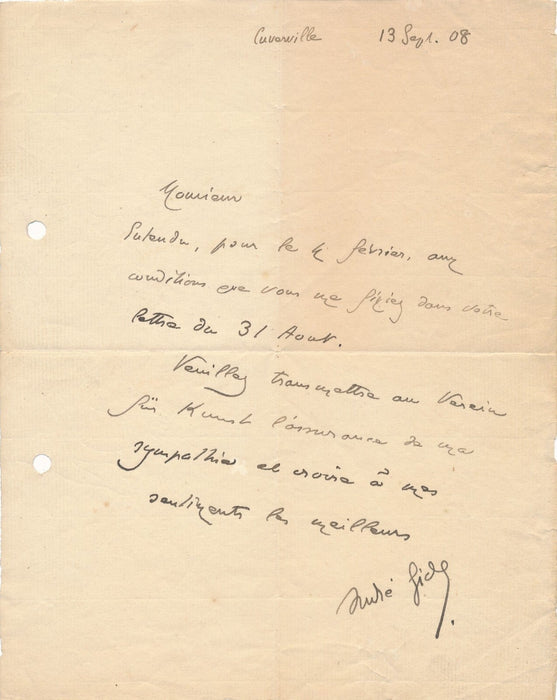 Cuverville 13 Sept. 08
Monsieur
Entendu, pour le 4 février, aux
conditions que vous me fixiez dans votre
lettre du 31 Aout.
Veuillez transmettre au Verein
für Kunst l'assurance de ma
sympathie et croire à mes
sentiments les meilleurs
André Gide.